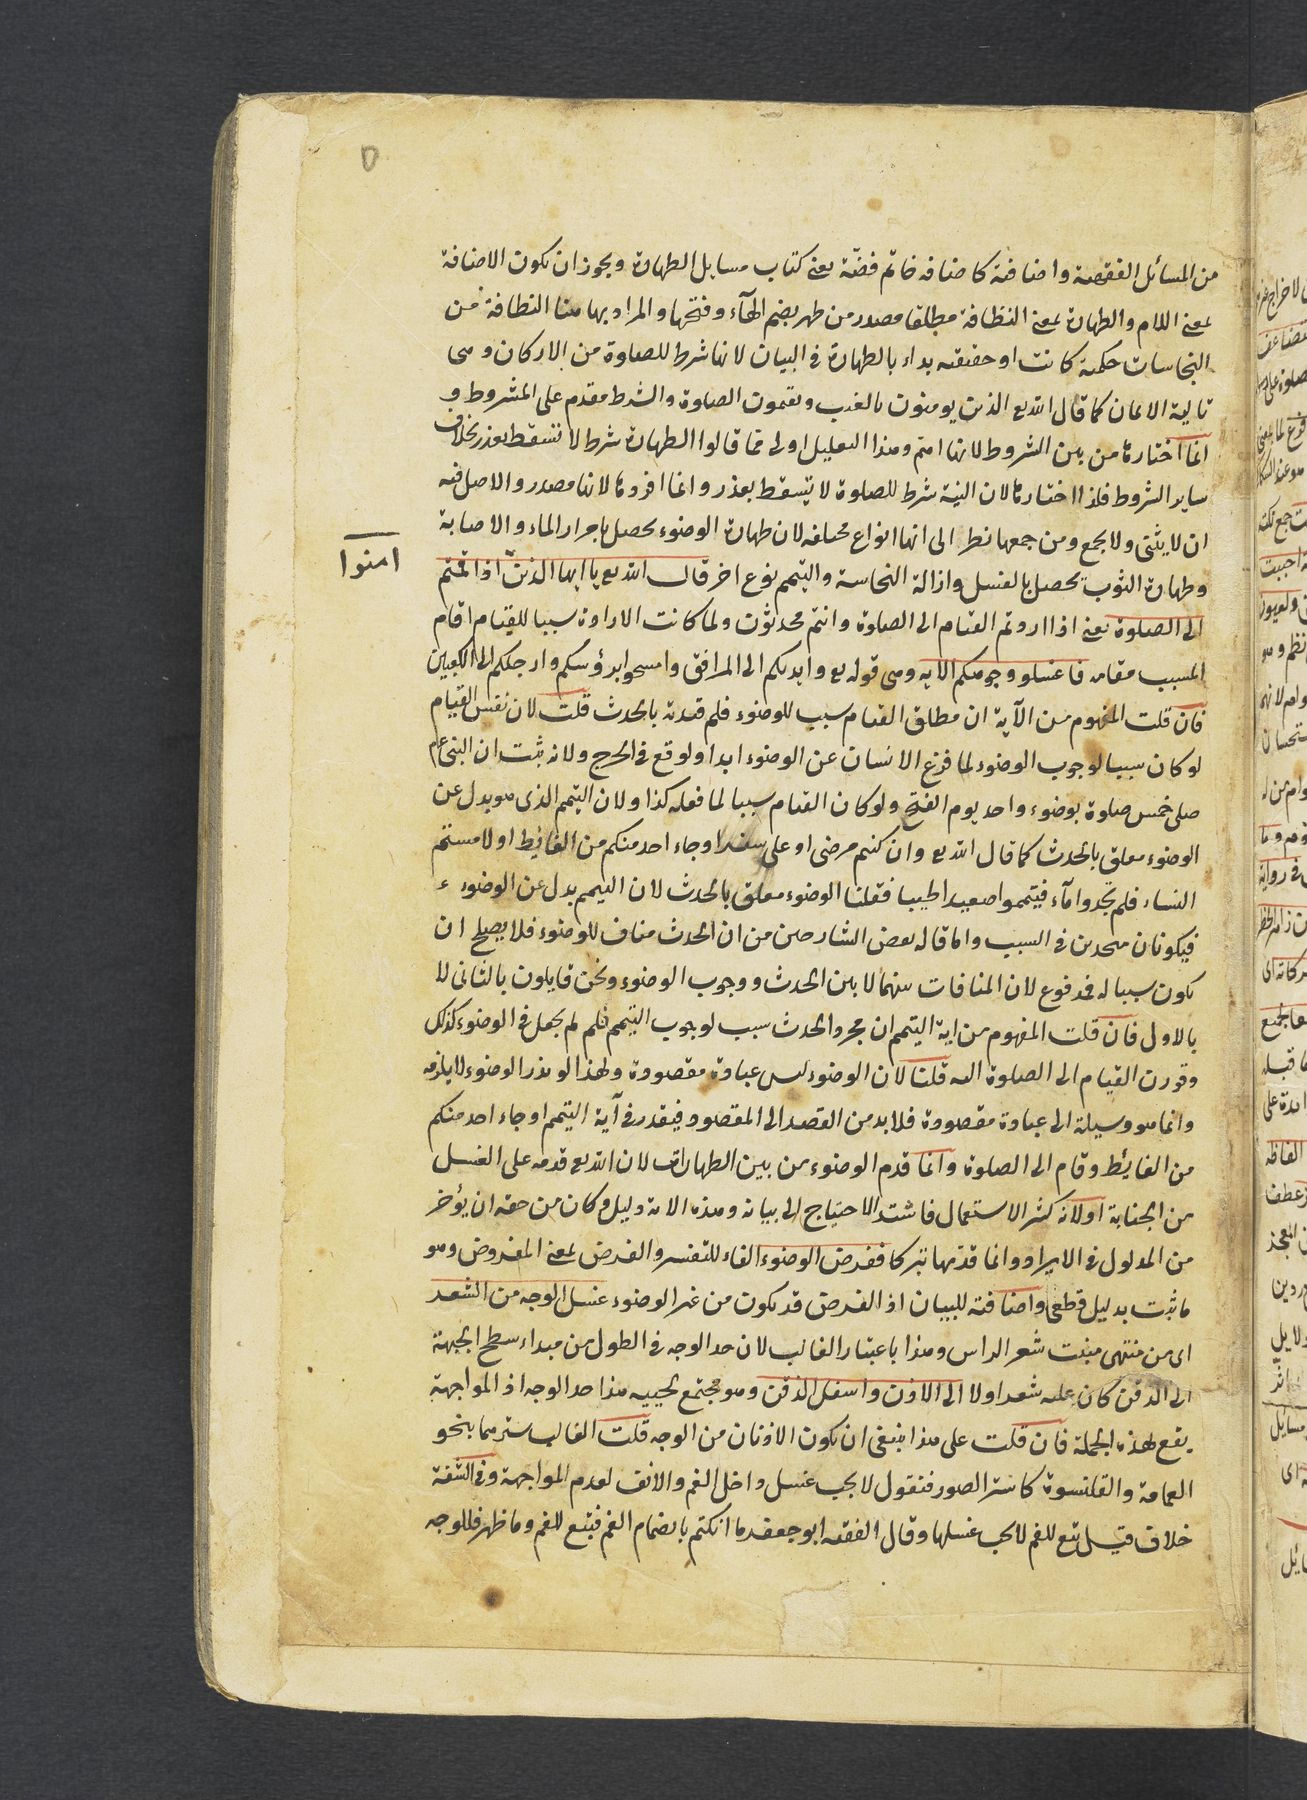 من المسائل الفقهية واضافته كاضافة خاتم فضّة يعنى كتاب مسايل الطهارة ويجوز ان يكون الاضافة
بمعنى اللام والطهارة بمعنى النظافة مطلقا مصدر من طهر بضم الهآء وفتحها والمراد بها هنا النظافة من
النجاسات حكمية كانت او حقيقية بداء بالطهارة فى البيان لانها شرط للصلوة من الاركان وهى
تالية الايمان كما قال الله تع الذين يومنون بالغيب ويقيمون الصلوة والشرط مقدم على المشروط و
انما اختارها من بين الشروط لانها اهم وهذا التعليل اولى مما قالوا الطهارة شرط لا تسقط بعذر بخلاف
ساير الشروط فلذا اختارها لان النية شرط للصلوة لا يسقط بعذر وانما افردها لانها مصدر والاصل فيه
ان لا يثنى ولا يجمع ومن جمعها نظر الى انها انواع مختلفة لان طهارة الوضوء يحصل باجراء الماء والاصابة
وطهارة الثوب يحصل بالغسل وازالة النجاسة والتيمم نوع اخر قال الله تع يا ايها الذين اذا قمتم
امنوا
الى الصلوة يعنى اذا اردتم القيام الى الصلوة وانتم محدثون ولما كانت الارادة سببا للقيام اقام
المسبب مقامه فاغسلوا وجوهكم الاية وهى قوله تع وايديكم الى المرافق وامسحوا برؤسكم وارجلكم الى الكعبين
فان قلت المفهوم من الآية ان مطلق القيام سبب للوضوء فلم قيدته بالحدث قلت لان نفس القيام
لو كان سببا لوجوب الوضوء لما فرغ الانسان عن الوضوء ابدا ولوقع فى الحرج ولانه ثبت ان النبى عم
صلى خمس صلوة بوضوء واحد يوم الفتح ولو كان القيام سببا لما فعله كذا ولان التيمم الذى هو بدل عن
الوضوء معلق بالحدث كما قال الله تع وان كنتم مرضى او على سفر او جاء احد منكم من الغائط او لامستم
النساء فلم تجدوا مآء فتيمموا صعيدا طيبا فقلنا الوضوء معلق بالحدث لان التيمم بدل عن الوضوء
فيكونان متحدين فى السبب واما قاله بعض الشارحين من ان الحدث مناف للوضوء فلا يصلح ان
يكون سببا له فمدفوع لان المنافات بينهما لا بين الحدث ووجوب الوضوء ونحن قايلون بالثانى لا
بالاول فان قلت المفهوم من اية التيمم ان مجرد الحدث سبب لوجوب التيمم فلم لم يجعل فى الوضوء كذلك
وقرن القيام الى الصلوة اليه قلنا لان الوضوء ليس عبادة مقصودة ولهذا لو نذر الوضوء لا يلزمه
وانما هو وسيلة الى عبادة مقصودة فلا بد من القصد الى المقصود فيقدر فى آية التيمم او جاء احد منكم
من الغائط وقام الى الصلوة وانما قدم الوضوء من بين الطهارات لان الله تع قدمه على الغسل
من الجنابة او لانه كثير الاستعمال فاشتد الاحتياج الى بيانه وهذه الاية دليل وكان من حقه ان يؤخر
من المدلول فى الايراد وانما قدّمها تبركا ففرض الوضوء الفاء للتفسير والفرض بمعنى المفروض وهو
ما ثبت بدليل قطعى واضافته للبيان اذ الفرض قد يكون من غير الوضوء غسل الوجه من الشعر
اى من منتهى منبت شعر الراس وهذا باعتبار الغالب لان حد الوجه فى الطول من مبداء سطح الجبهة
الى الذقن كان عليه شعر اولا الى الاذن واسفل الذقن وهو مجتمع لحييه هذا حد الوجه اذ المواجهة
يقع لهذه الجملة فان قلت على هذا ينبغى ان يكون الاذنان من الوجه قلت الغالب سترهما بنحو
العمامة والقلنسوة كاستر الصور فنقول لا يجب غسل داخل الفم والانف لعدم المواجهة وفى الشفة
خلاف قيل تبع للفم لا يجب غسلها وقال الفقيه ابو جعفر ما انكتم بانضمام الفم فتبع للفم وما ظهر فللوجه